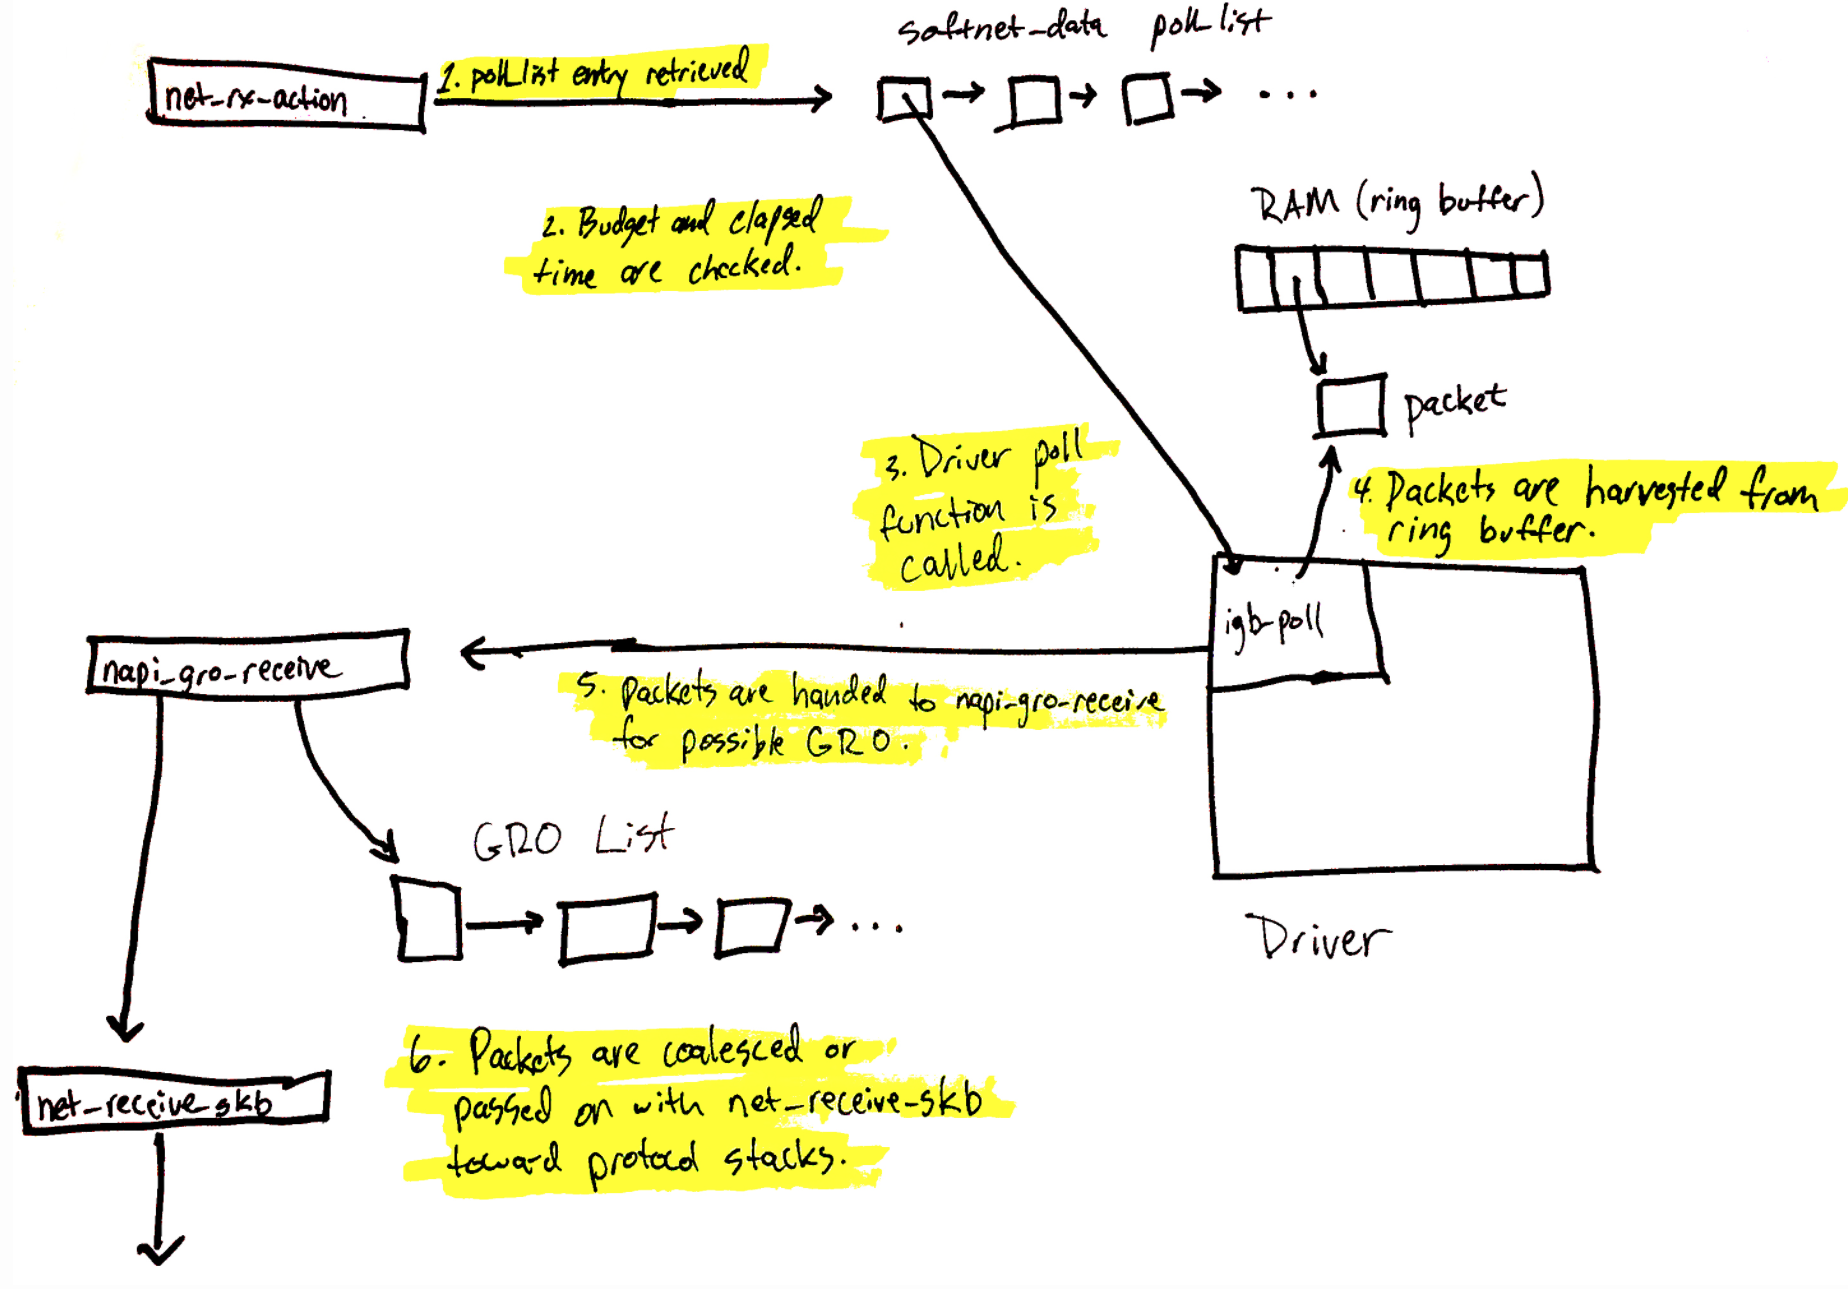 softnet_data poll_list
net_rx_action
1. poll_list entry retrieved
...
RAM (ring buffer)
2. Budget and elapsed
time are checked.
packet
3. Driver poll
function is
called.
4. Packets are harvested from
ring buffer.
igb_poll
napi_gro_receive
5. packets are handed to napi_gro_receive
for possible GRO.
GRO List
...
Driver
6. Packets are coalesced or
passed on with net_receive_skb
toward protocol stacks.
net_receive_skb